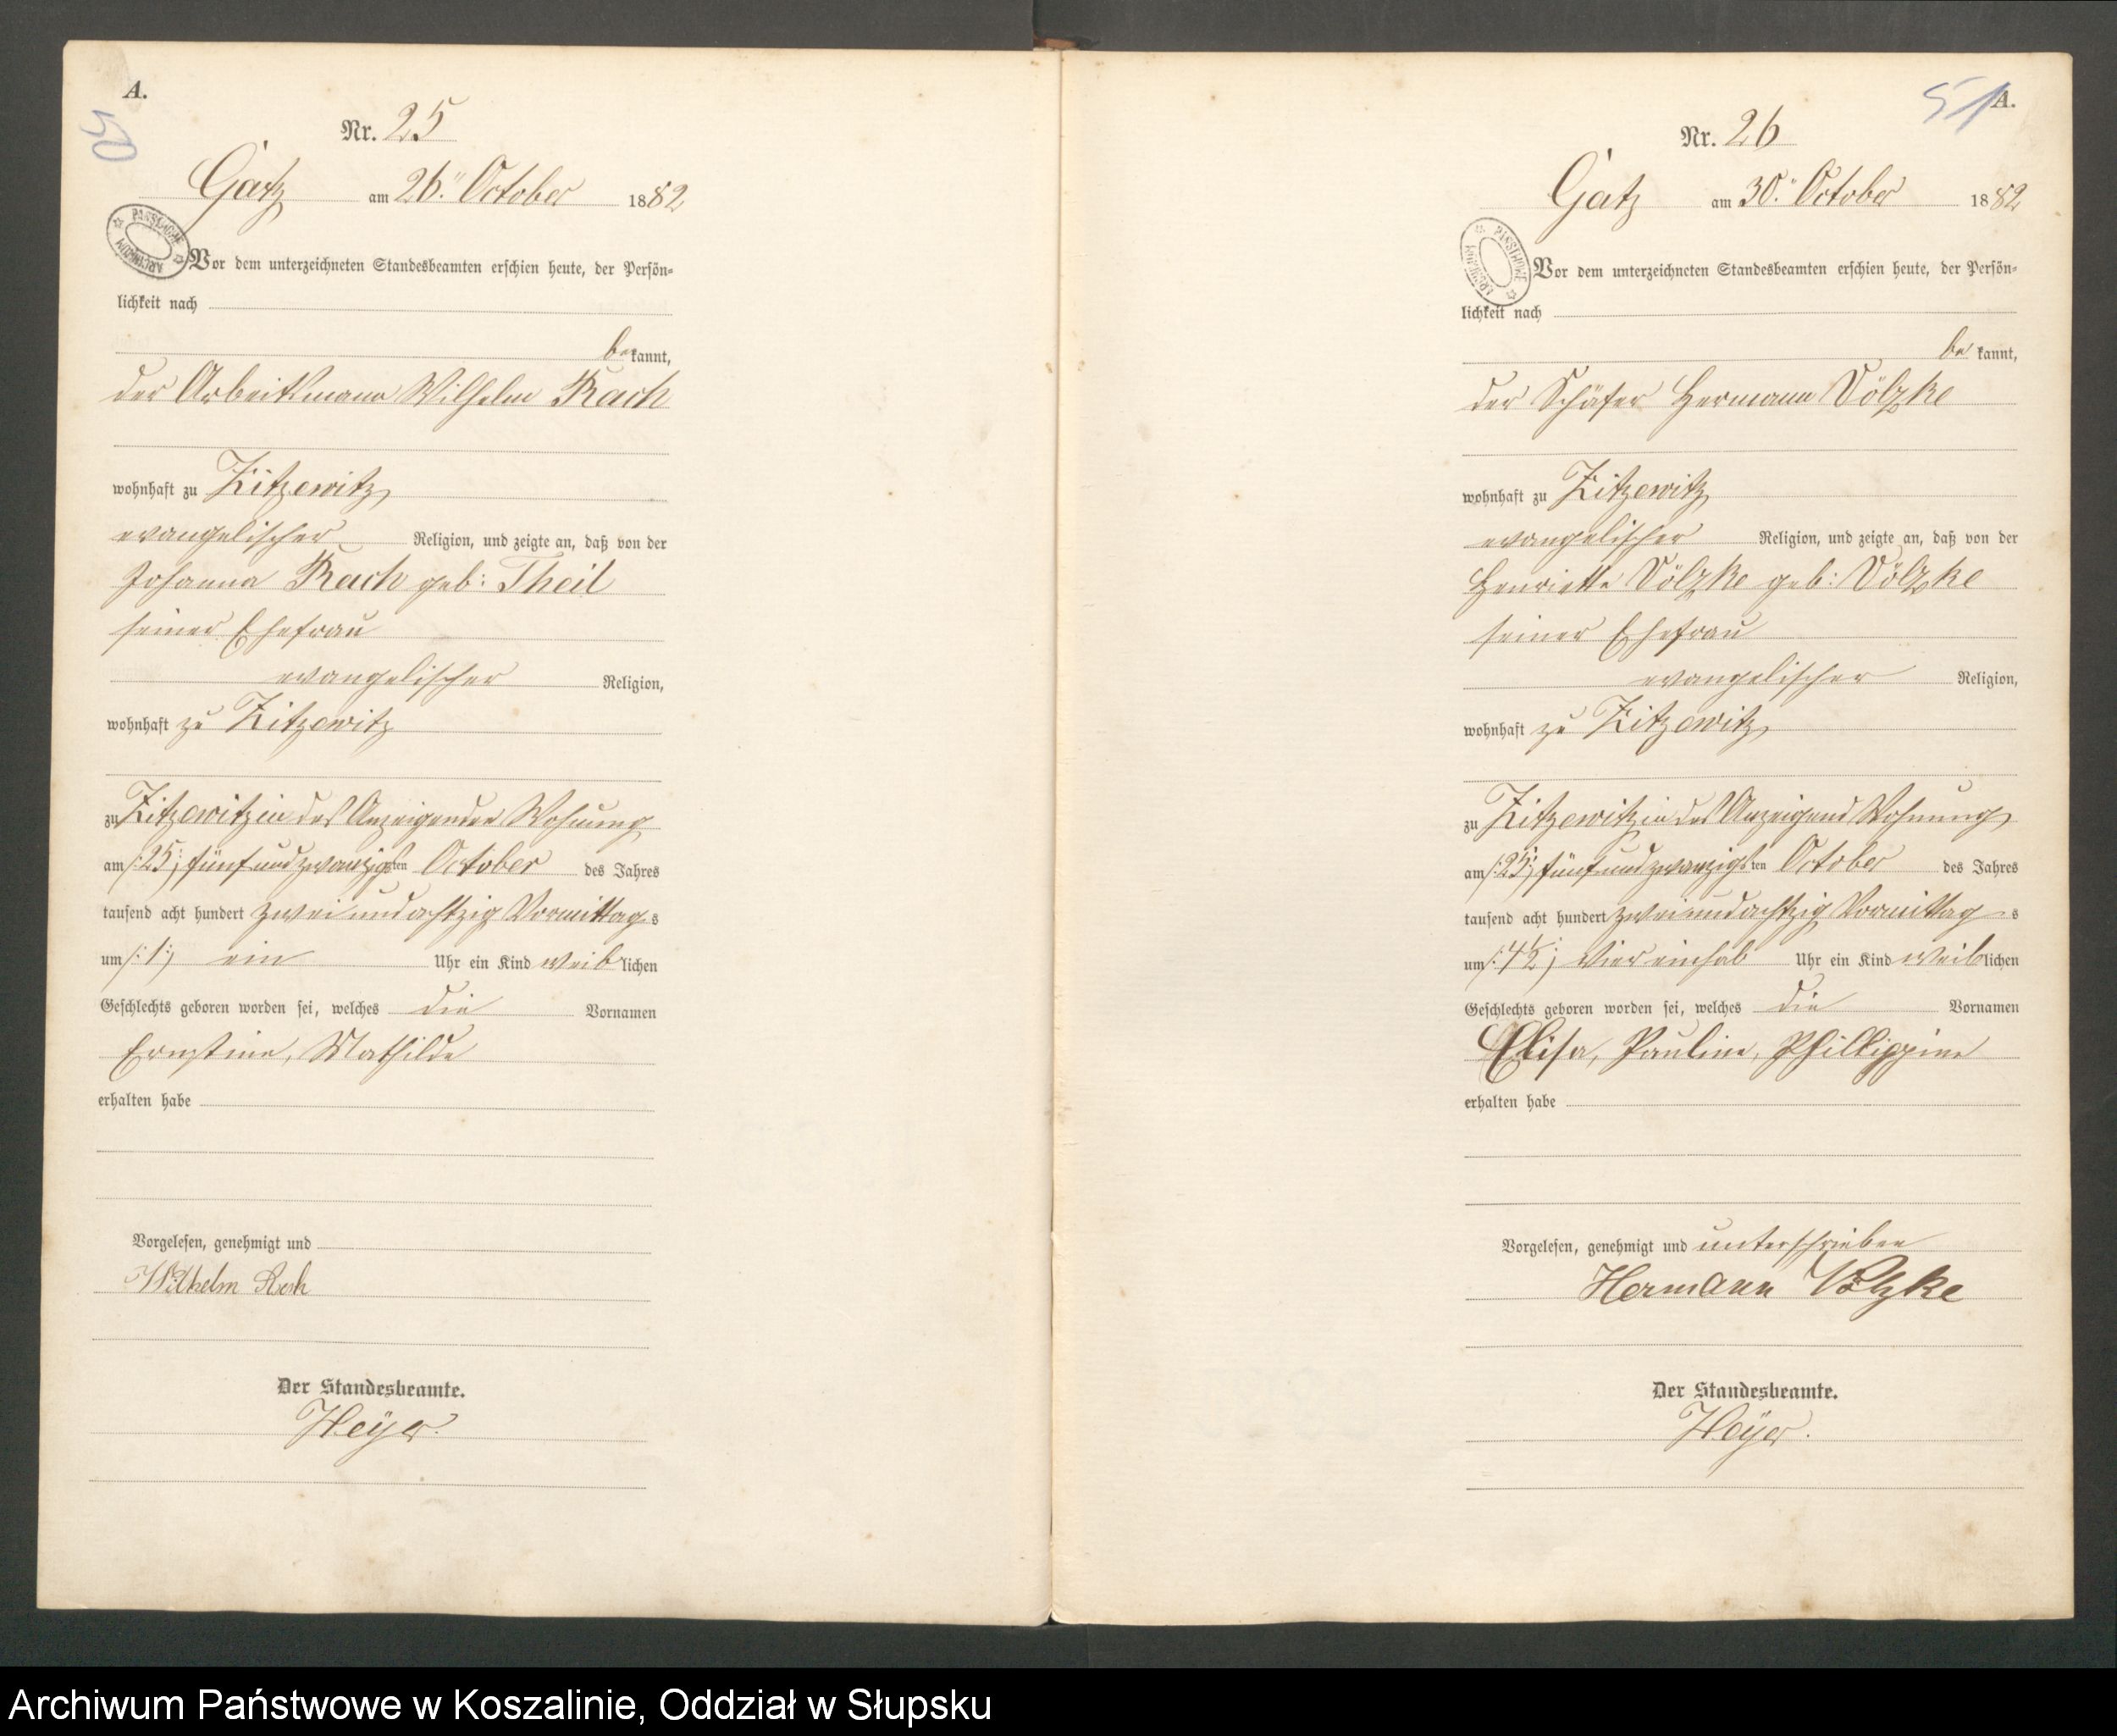 A.
50
Nr. 25
Gatz am 26. October 1882
Vor dem unterzeichneten Standesbeamten erschien heute, der Persön=
lichkeit nach
be kannt,
der Arbeitsmann Wilhelm Rach
wohnhaft zu Zitzewitz
evangelischer Religion, und zeigte an, daß von der
Johanna Rach geb: Theil
seiner Ehefrau
evangelischer Religion,
wohnhaft zu Zitzewitz
zu Zitzewitz in des Anzeigenden Wohnung
am /:25:/ fünfundzwanzigsten October des Jahres
tausend acht hundert zweiundachtzig Vormittags
um /:1:/ ein Uhr ein Kind weiblichen
Geschlechts geboren worden sei, welches die Vornamen
Ernstine, Mathilde
erhalten habe
Vorgelesen, genehmigt und
Wilhelm
Der Standesbeamte.
Heyer.
51
A.
Nr. 26
Gatz am 30. October 1882
PAŃSTWOWE ARCHIWUM
Vor dem unterzeichneten Standesbeamten erschien heute, der Persön=
lichkeit nach
be kannt,
der Schäfer Hermann Völzke
wohnhaft zu Zitzewitz
evangelischer Religion, und zeigte an, daß von der
Henriette Völzke geb: Völzke
seiner Ehefrau
evangelischer Religion,
wohnhaft zu Zitzewitz
zu Zitzewitz in des Anzeigend Wohnung
am /:25:/ fünfundzwanzigsten October des Jahres
tausend acht hundert zweiundachtzig Vormittags
um /:4½:/ vier einhalb Uhr ein Kind weiblichen
Geschlechts geboren worden sei, welches die Vornamen
Elisa, Pauline, Phillippine
erhalten habe
Vorgelesen, genehmigt und unterschrieben
Hermann Völzke
Der Standesbeamte.
Heyer.
Archiwum Państwowe w Koszalinie, Oddział w Słupsku